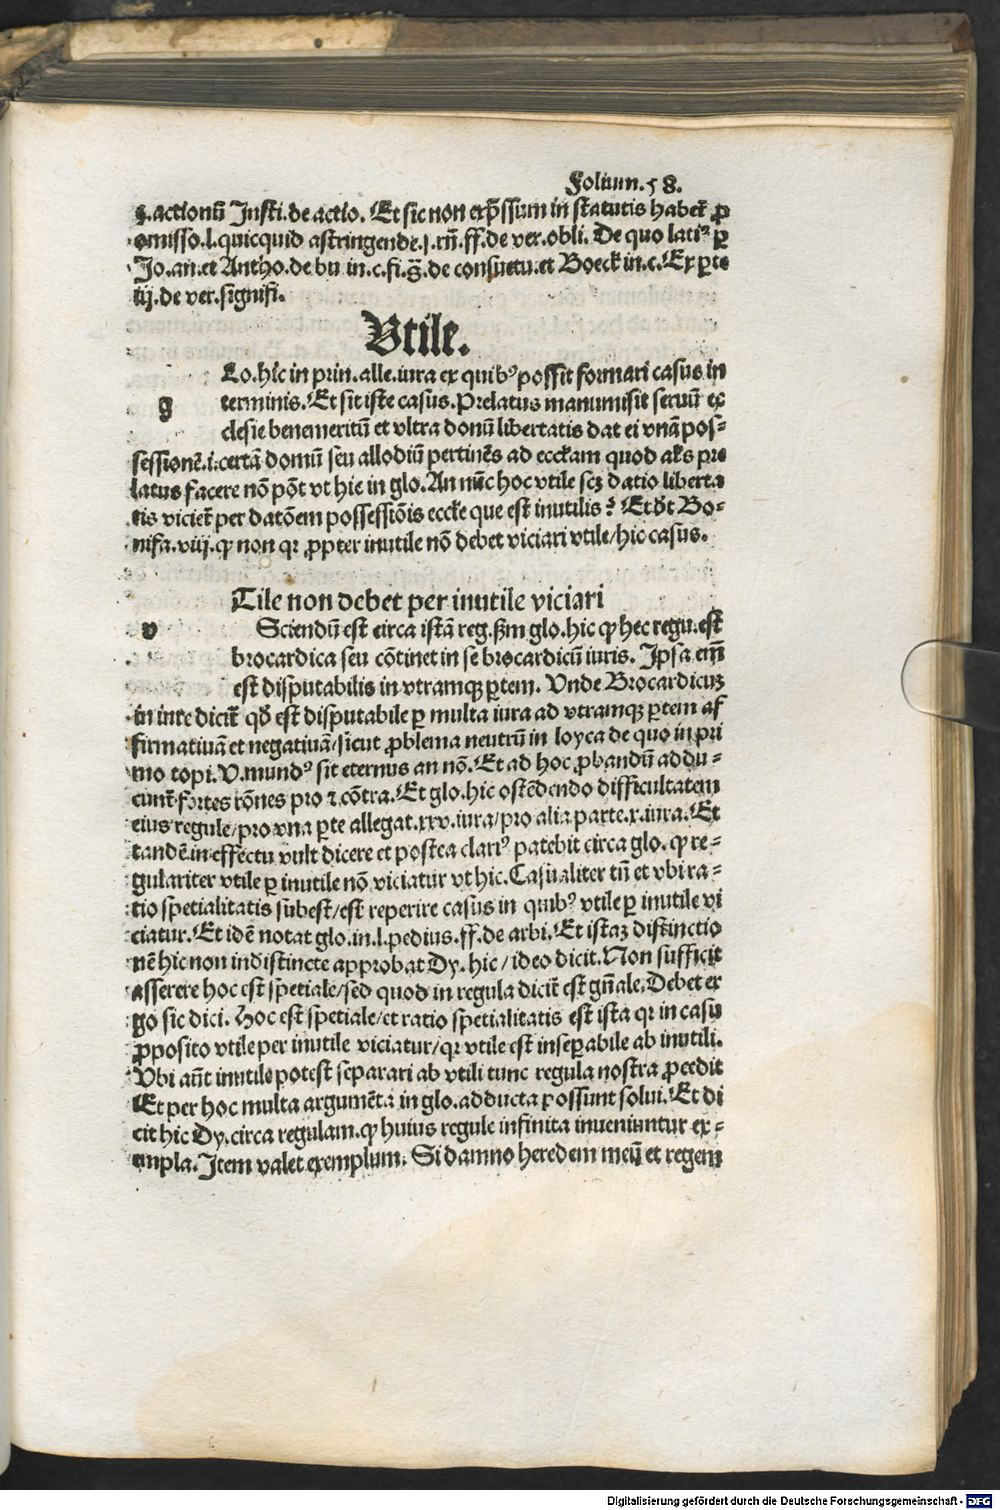 Foliuȝ.58.
§.actionũ Insti.de actio. Et sic non exp̃ssum in statutis habet̃ ꝓ
omisso.l.quicquid astringende.§.rñ.ff.de ver.obli. De quo lati⁹ ꝑ
Jo.an.et Antho.de bu.in.c.fi.g̃.de consuetu.et Boeck̃ in.c.Ex ꝑte
iij.de ver.signifi.
Vtile.
g Lo.hic in prin.alle.iura ex quib⁹ possit formari casus in
terminis. Et sit iste casus. Prelatus manumisit seruũ ec
clesie benemeritũ et vltra donũ libertatis dat ei vnã pos⸗
sessionẽ.i.certã domũ seu allodiũ pertinẽs ad eccl̃am quod al̃s pre
latus facere nõ põt vt hic in glo. An nũc hoc vtile scȝ datio liberta
tis viciet̃ per datõem possessiõis eccl̃e que est inutilis? Et dt̃ Bo⸗
nifa.viij.ꝙ non qꝛ ꝓpter inutile nõ debet viciari vtile/hic casus.
v Tile non debet per inutile viciari
Sciendũ est circa istã reg.ẞm glo.hic ꝙ hec regu.est
brocardica seu cõtinet in se brocardicũ iuris. Ipsa em̃
est disputabilis in vtramqꝫ ꝑtem. Vnde Brocardicuȝ
in iure dicit̃ qđ est disputabile ꝑ multa iura ad vtramqꝫ ꝑtem af
firmatiuã et negatiuã/sicut ꝓblema neutrũ in loyca de quo in pri
mo topi. V.mund⁹ sit eternus an nõ. Et ad hoc ꝓbandũ addu⸗
cunt̃ fortes rõnes pro ⁊ cõtra. Et glo.hic ostẽdendo difficultatem
eius regule/pro vna ꝑte allegat.xxv.iura/pro alia parte.x.iura. Et
tandẽ in effectu vult dicere et postea clari⁹ patebit circa glo. ꝙ re⸗
gulariter vtile ꝑ inutile nõ viciatur vt hic. Casualiter tñ et vbi ra⸗
tio spetialitatis subest/est reperire casus in quib⁹ vtile ꝑ inutile vi
ciatur. Et idẽ notat glo.in.l.pedius.ff.de arbi. Et istaȝ distinctio
nẽ hic non indistincte approbat Dy.hic/ideo dicit. Non sufficit
asserere hoc est spetiale/sed quod in regula dicit̃ est gñale. Debet er
go sic dici. Hoc est spetiale/et ratio spetialitatis est ista qꝛ in casu
ꝓposito vtile per inutile viciatur/qꝛ vtile est insep̃abile ab inutili.
Vbi aũt inutile potest separari ab vtili tunc regula nostra ꝓcedit
Et per hoc multa argumẽta in glo.adducta possunt solui. Et di
cit hic Dy.circa regulam.ꝙ huius regule infinita inueniuntur ex⸗
empla. Item valet exemplum. Si damno heredem meũ et regem
Digitalisierung gefördert durch die Deutsche Forschungsgemeinschaft - DFG